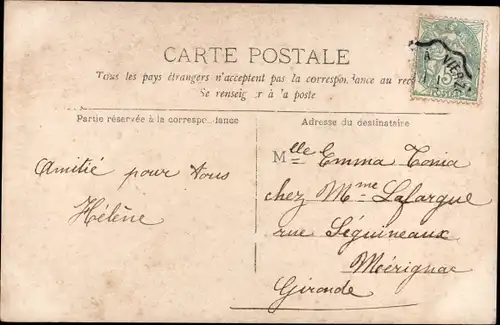 CARTE POSTALE
Tous les pays étrangers n'acceptent pas la correspondance au rec
Se renseigner à la poste
Partie réservée à la correspondance
Adresse du destinataire
Amitié pour tous
Hélène
Mlle Emma Tonia
chez Mme Lafargue
rue Séguineaux
Mérignac
Gironde